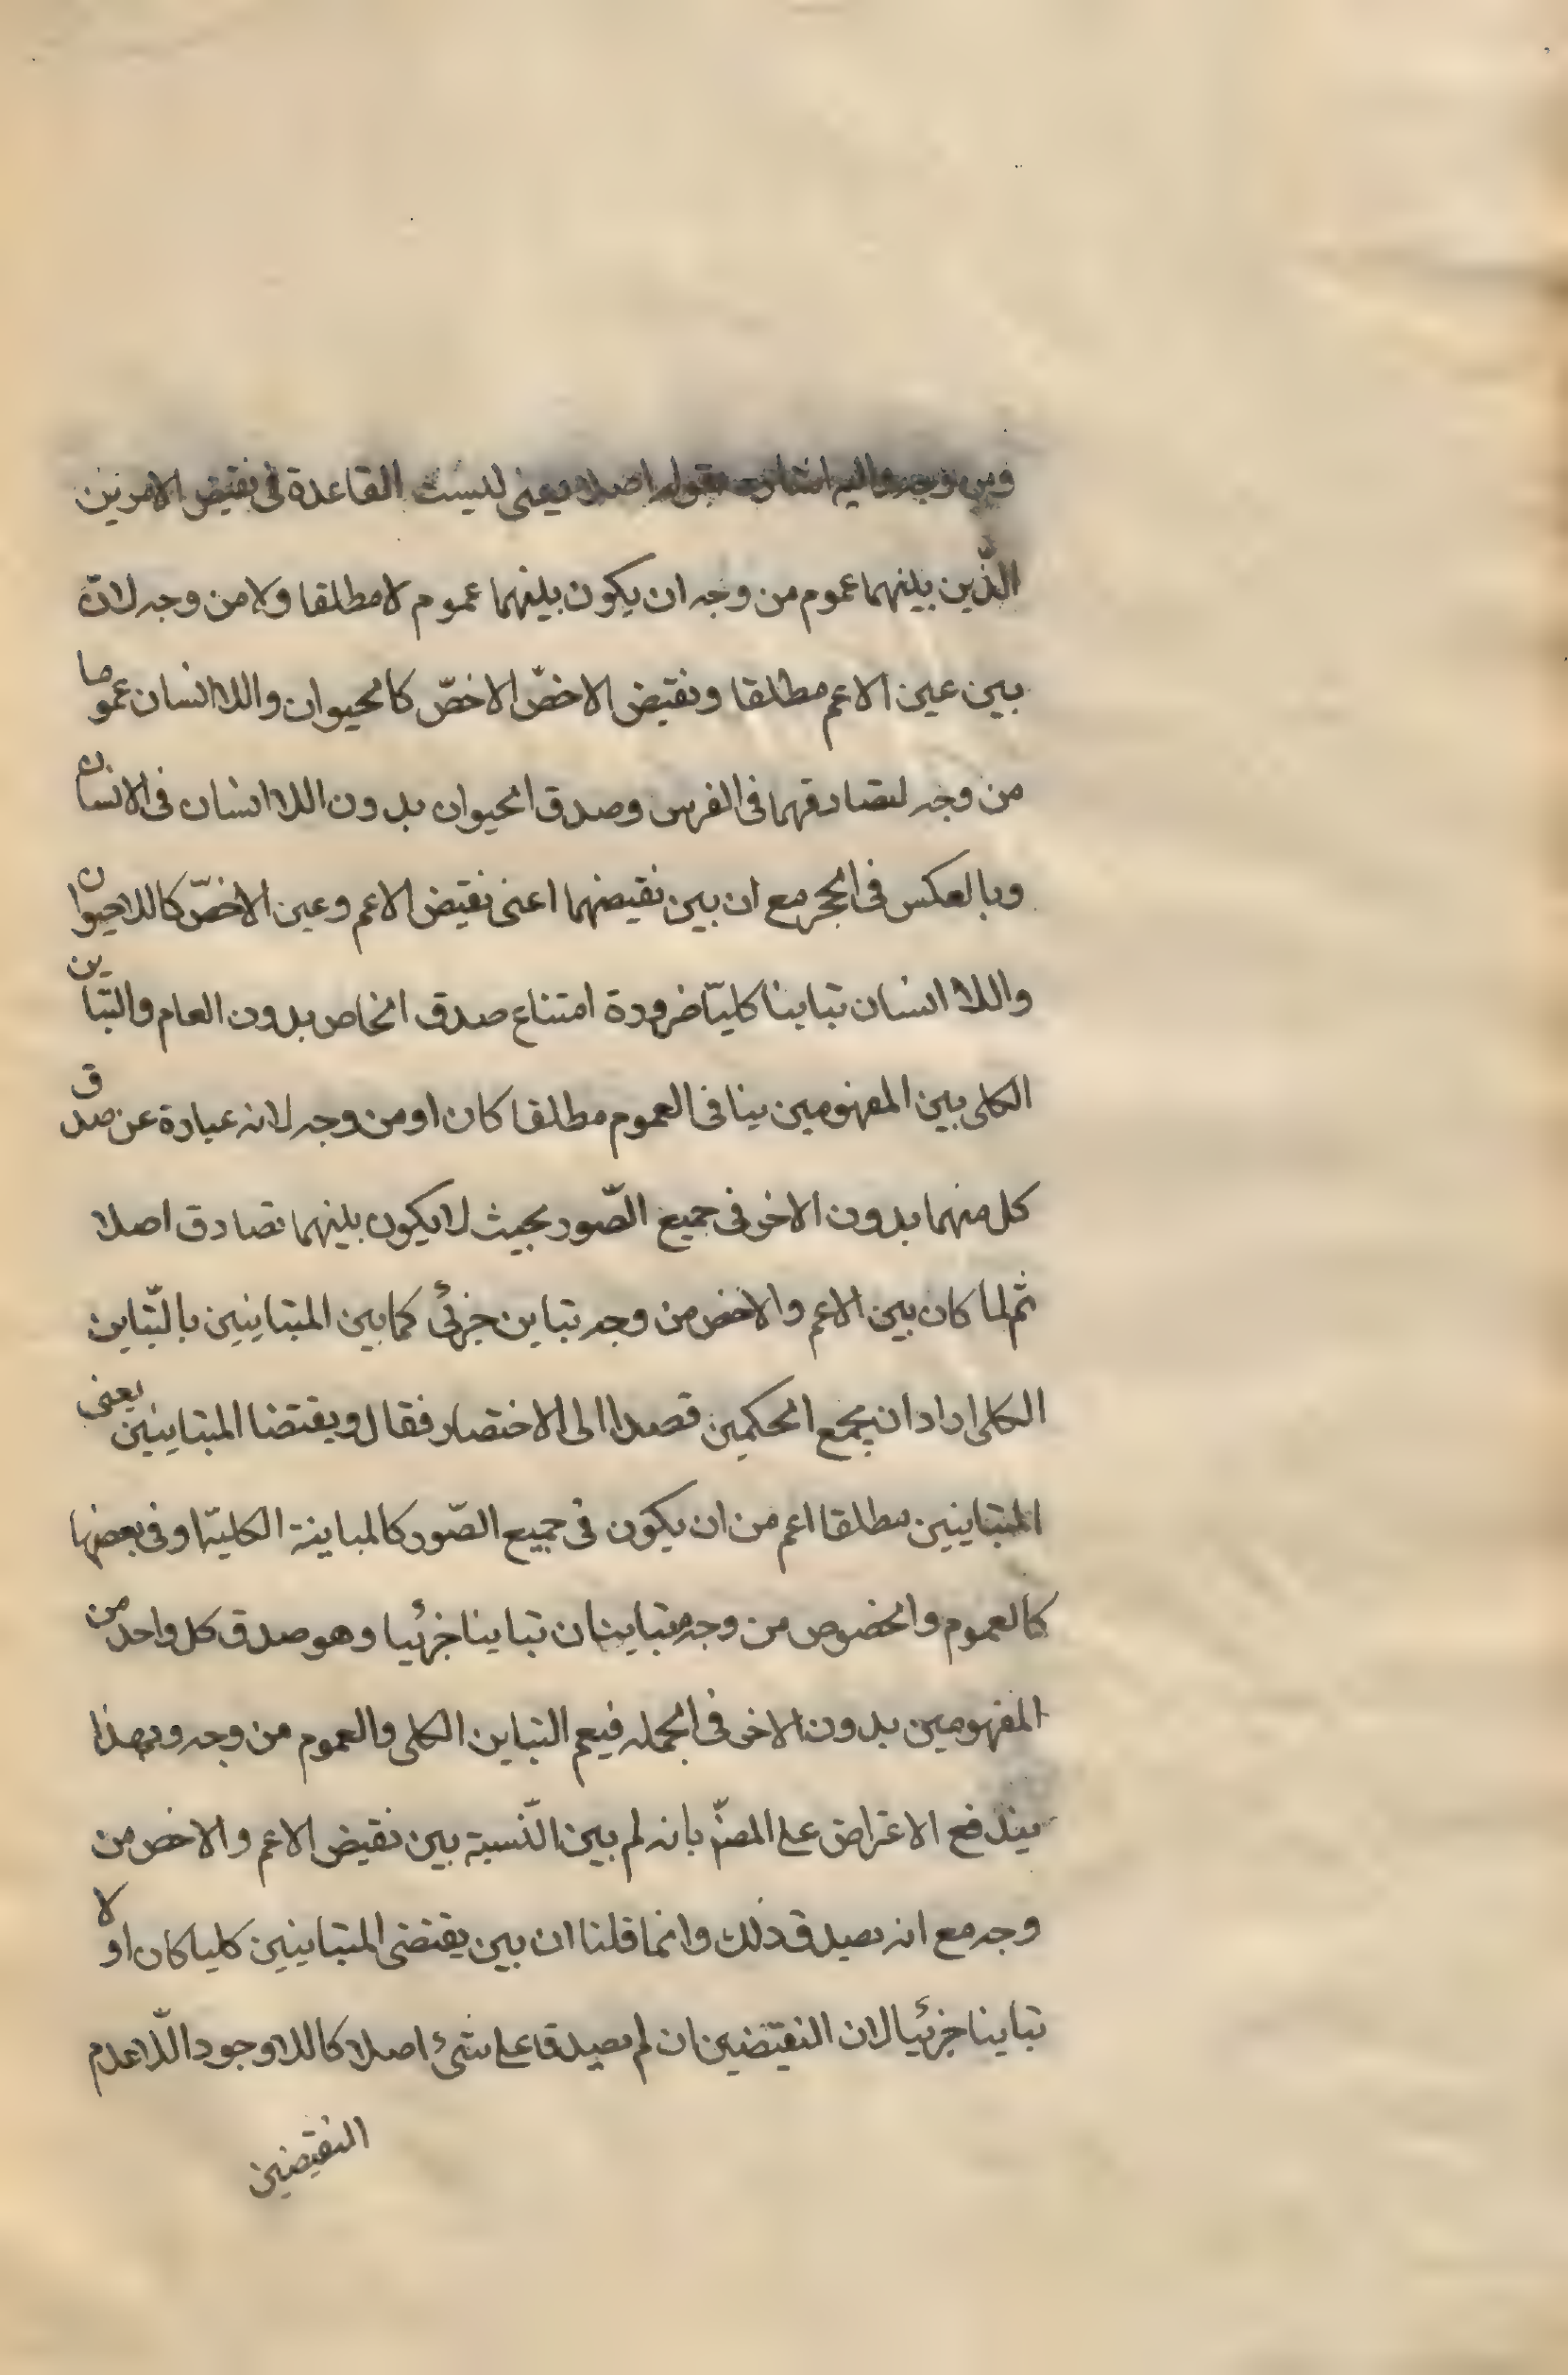 ومن وجه واليه اشارت بقوله اصلا يعنى ليست القاعدة فى نقيض الامرين
الّذين بينهما عموم من وجه ان يكون بينهما عموم لا مطلقا ولا من وجه لانّ
بين عين الاعم مطلقا ونقيض الاخصّ الاخصّ كالحيوان واللاانسان عموما
من وجه لتصادقهما فى الفرس وصدق الحيوان بدون اللاانسان فى الانسان
وبالعكس فى الحجر مع ان بين نقيضهما اعنى نقيض الاعم وعين الاخصّ كاللاحيوان
واللاانسان تباينا كليّا ضرورة امتناع صدق الخاص بدون العام والتباين
الكلى بين المفهومين ينافى العموم مطلقا كان او من وجه لانه عبارة عن صدق
كل منهما بدون الاخر فى جميع الصّور بحيث لا يكون بينهما تصادق اصلا
ثم لما كان بين الاعم والاخص من وجه تباين جزئى كما بين المتباينين بالتّباين
الكلى اراد ان يجمع الحكمين قصدا الى الاختصار فقال ويقتضا المتباينين يعنى
المتباينين مطلقا اعم من ان يكون فى جميع الصّور كالمباينة الكليّة او فى بعضها
كالعموم والخصوص من وجه متباينان تباينا جزئيا وهو صدق كل واحد من
المفهومين بدون الاخر فى الجمله فيعم التباين الكلى والعموم من وجه وبهذا
يندفع الاعتراض على المصنّ بانه لم بين النّسبة بين نقيض الاعم والاخص من
وجه مع انه بصدق ذلك وانما قلنا ان بين يقتضى المتباينين كليا كان او لا
تباينا جزئيا لان النقيضين ان لم يصدقا على شئ اصلا كاللاوجود اللّاعدم
النقيضين